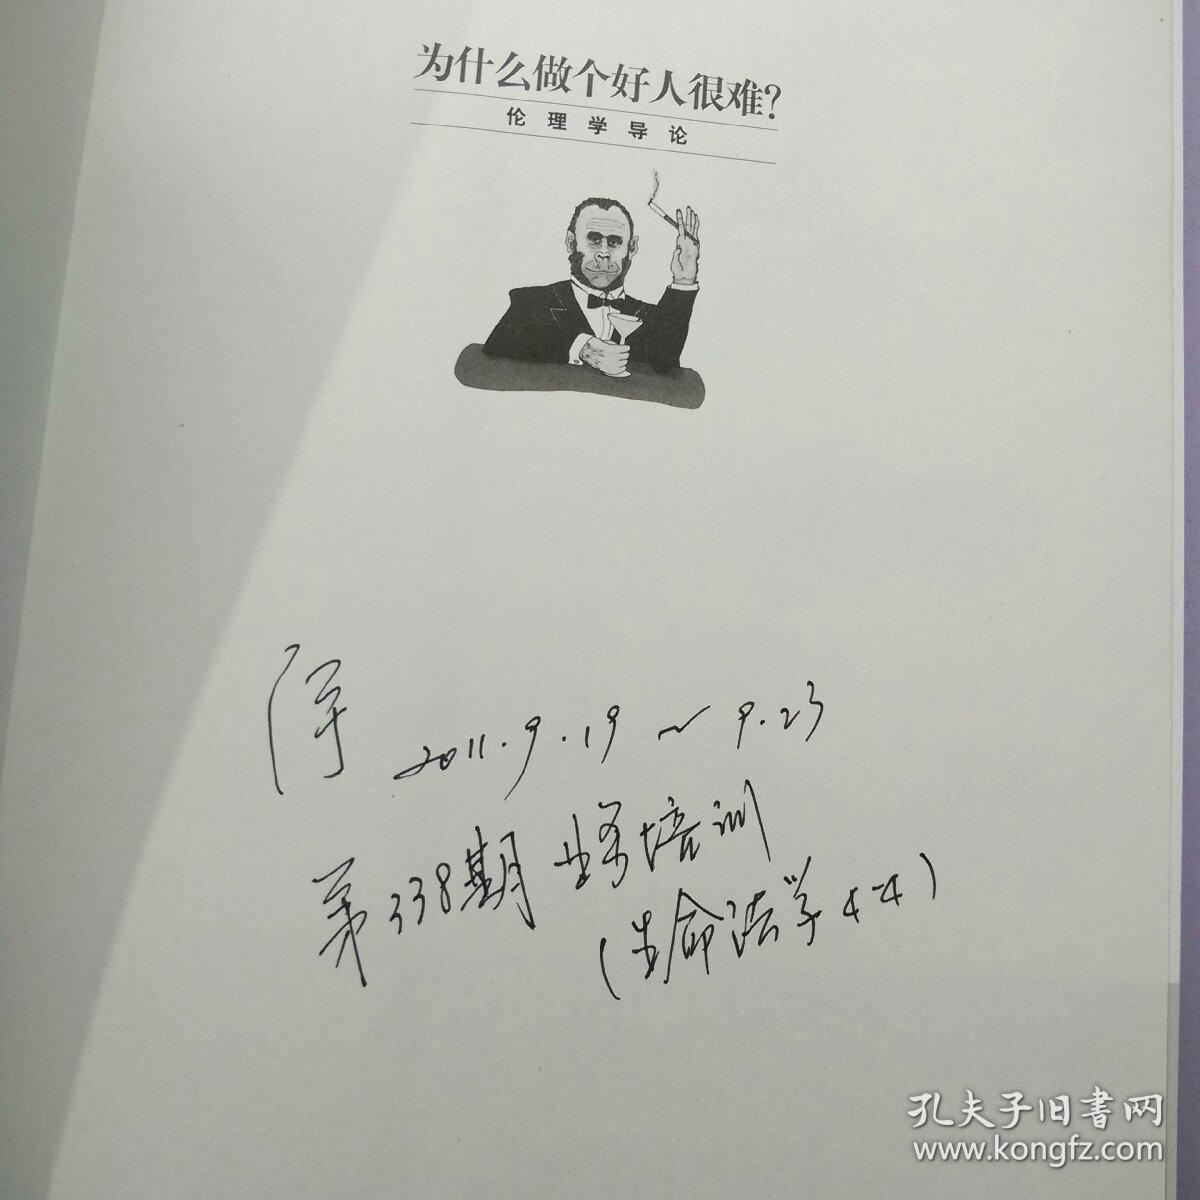 为什么做个好人很难?
伦理学导论
2011.9.19~9.23
第338期业务培训
(生命法学4-4)
孔夫子旧书网
www.kongfz.com